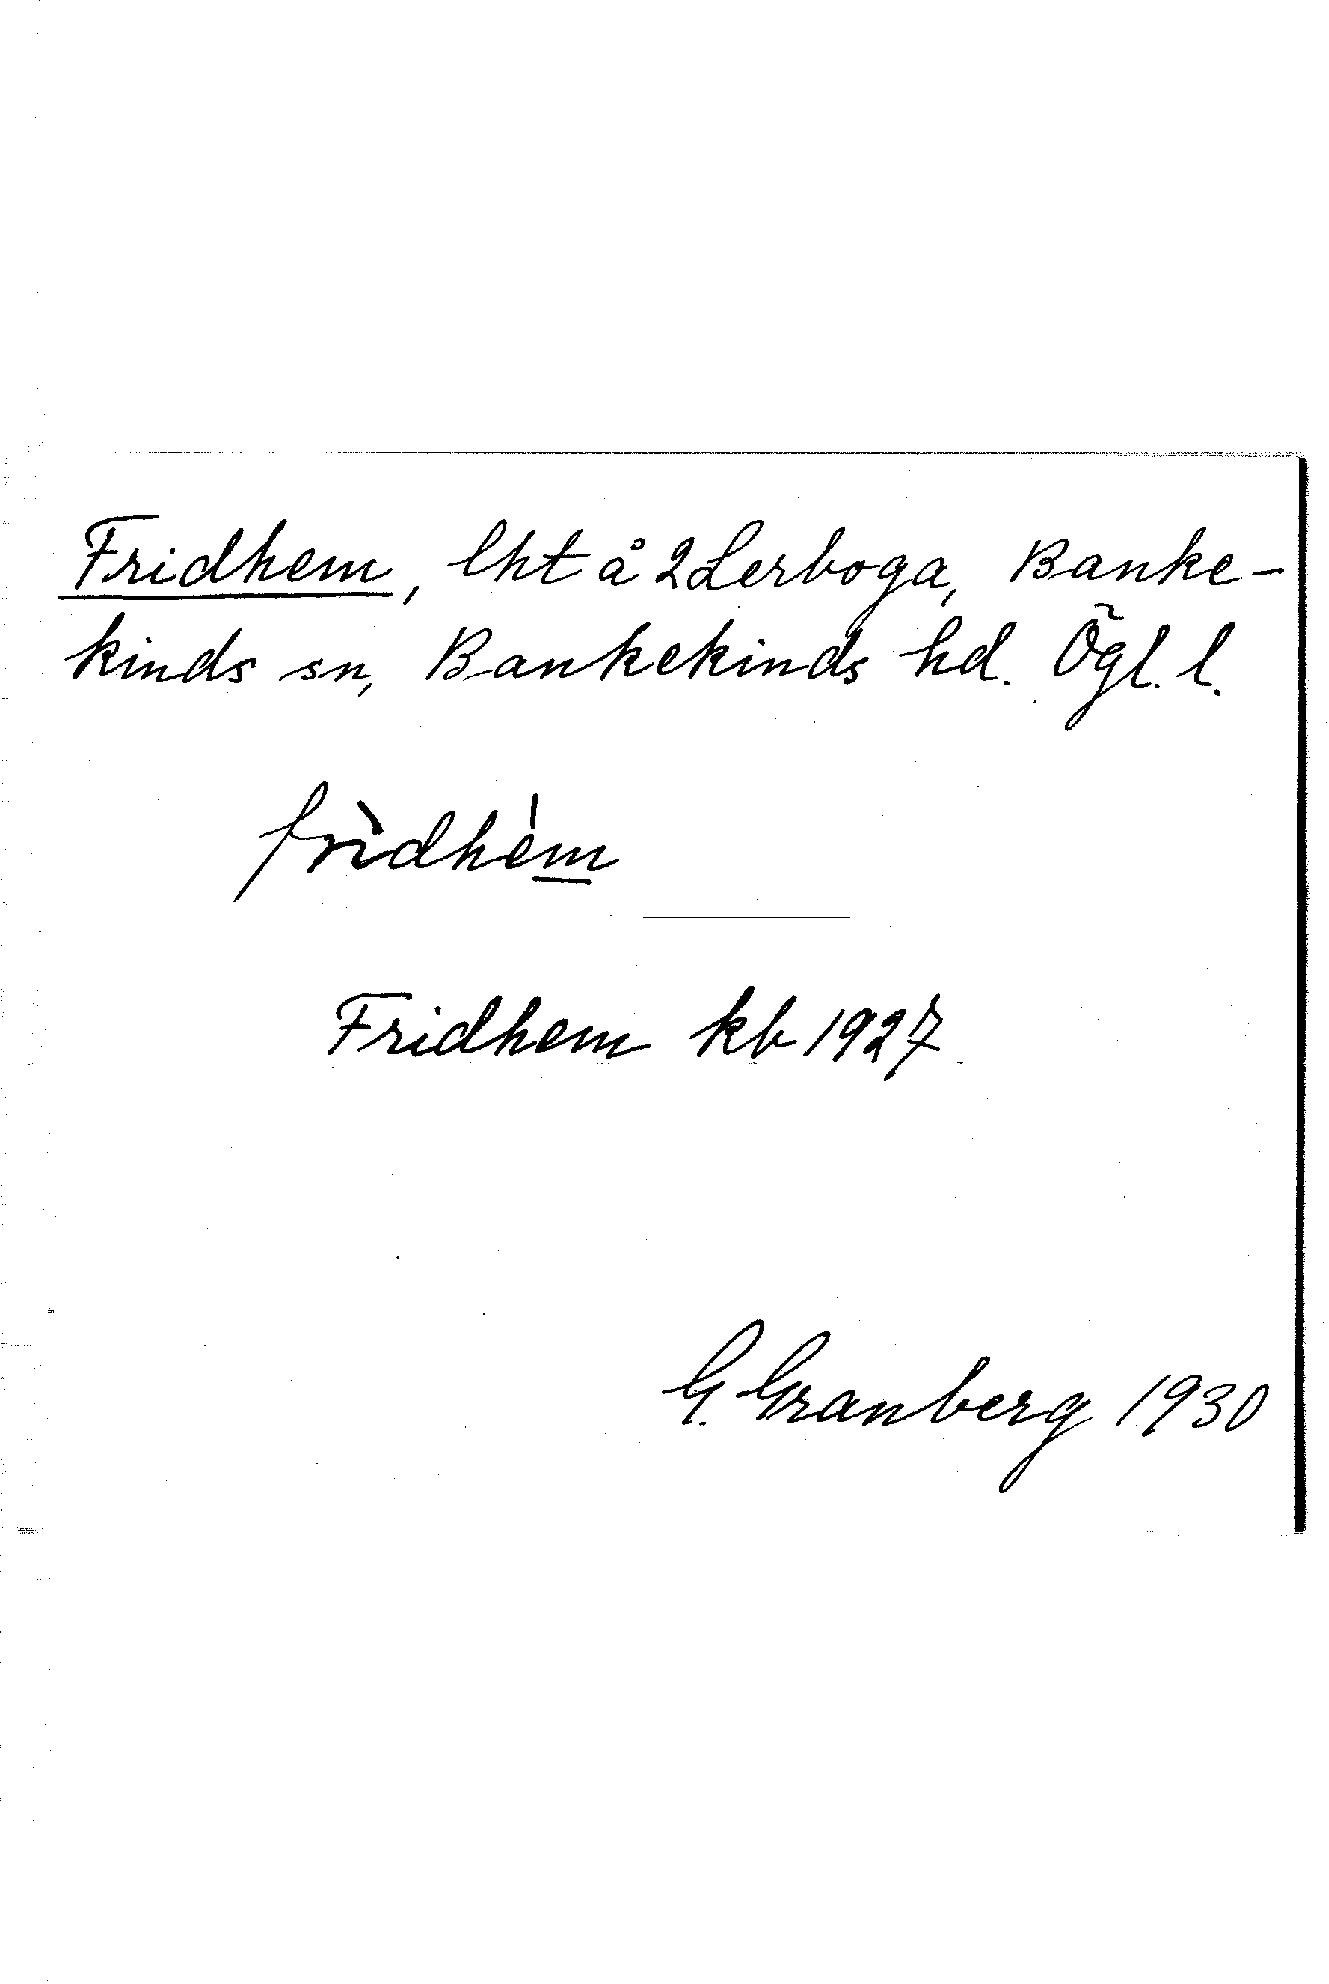 Fridhem, lht å 2 Lerboga, Banke-
kinds sn, Bankekinds hd. Ögl. l.
frìdhèm
Fridhem kb 1927
G. Granberg 1930